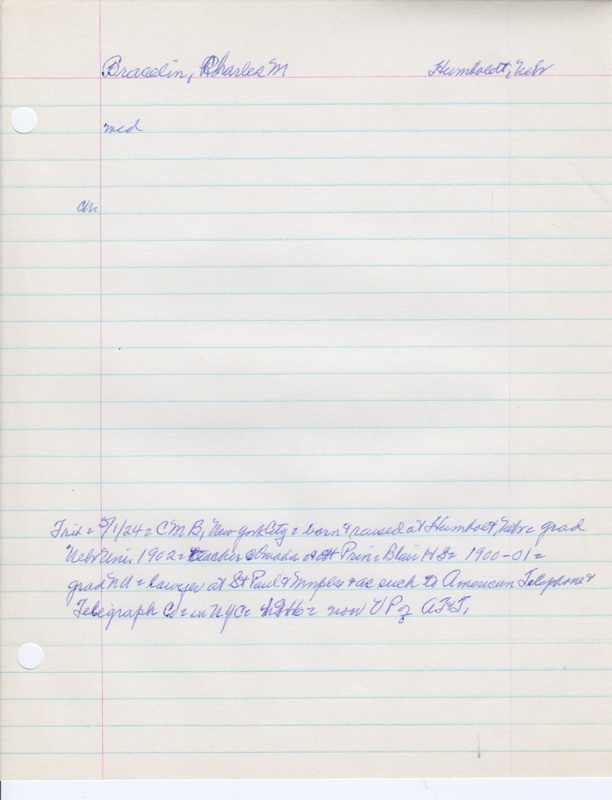 Bracelin, Charles M Humboldt, Nebr
med
ch
Trib = 5/1/24 = C M B, New York City = born & raised at Humboldt, Nebr = grad
Nebr Univ. 1902 = teacher Omaha & Prin = Blair H S = 1900-01 =
grad NU = lawyer at St Paul & Mnpls & as such to American Telephone &
Telegraph Co = in NYC = = now V P of AT&T,